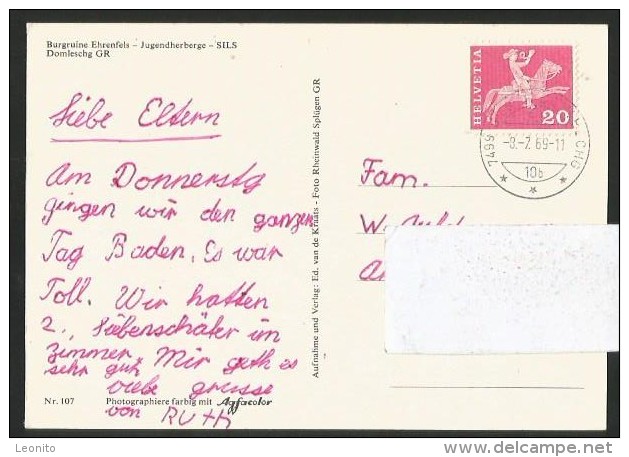 Burgruine Ehrenfels – Jugendherberge – SILS
Domleschg GR
Liebe Eltern
Am Donnerstg
gingen wir den ganzen
Tag Baden. Es war
Toll. Wir hatten
2., Siebenschäfer im
zimmer. Mir geth es
sehr gut,
viele grüsse
von RUTH
Nr. 107 Photographiere farbig mit Agfacolor
Aufnahme und Verlag: Ed. van de Kraats - Foto Rheinwald Splügen GR
HELVETIA
20
7499
-8.-7. 69-11
10b
Fam.
W.
Leonito
www.delcampe.net